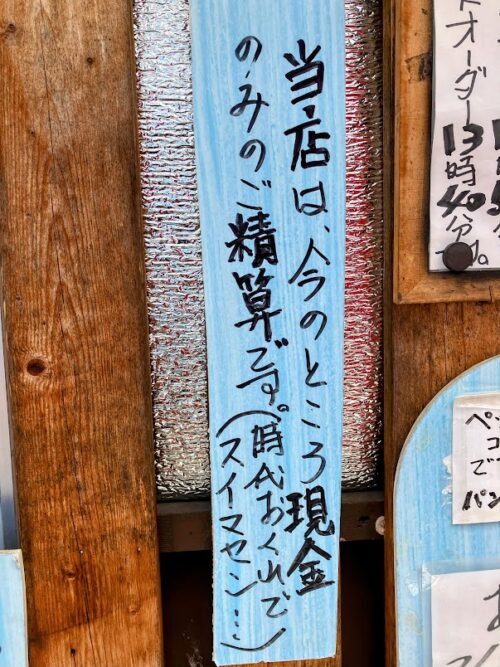 当店は、今のところ現金
のみのご精算です。
(時代おくれで
スイマセン…)
トオーダー
13時40分です。
ペッ
コ
で
パン